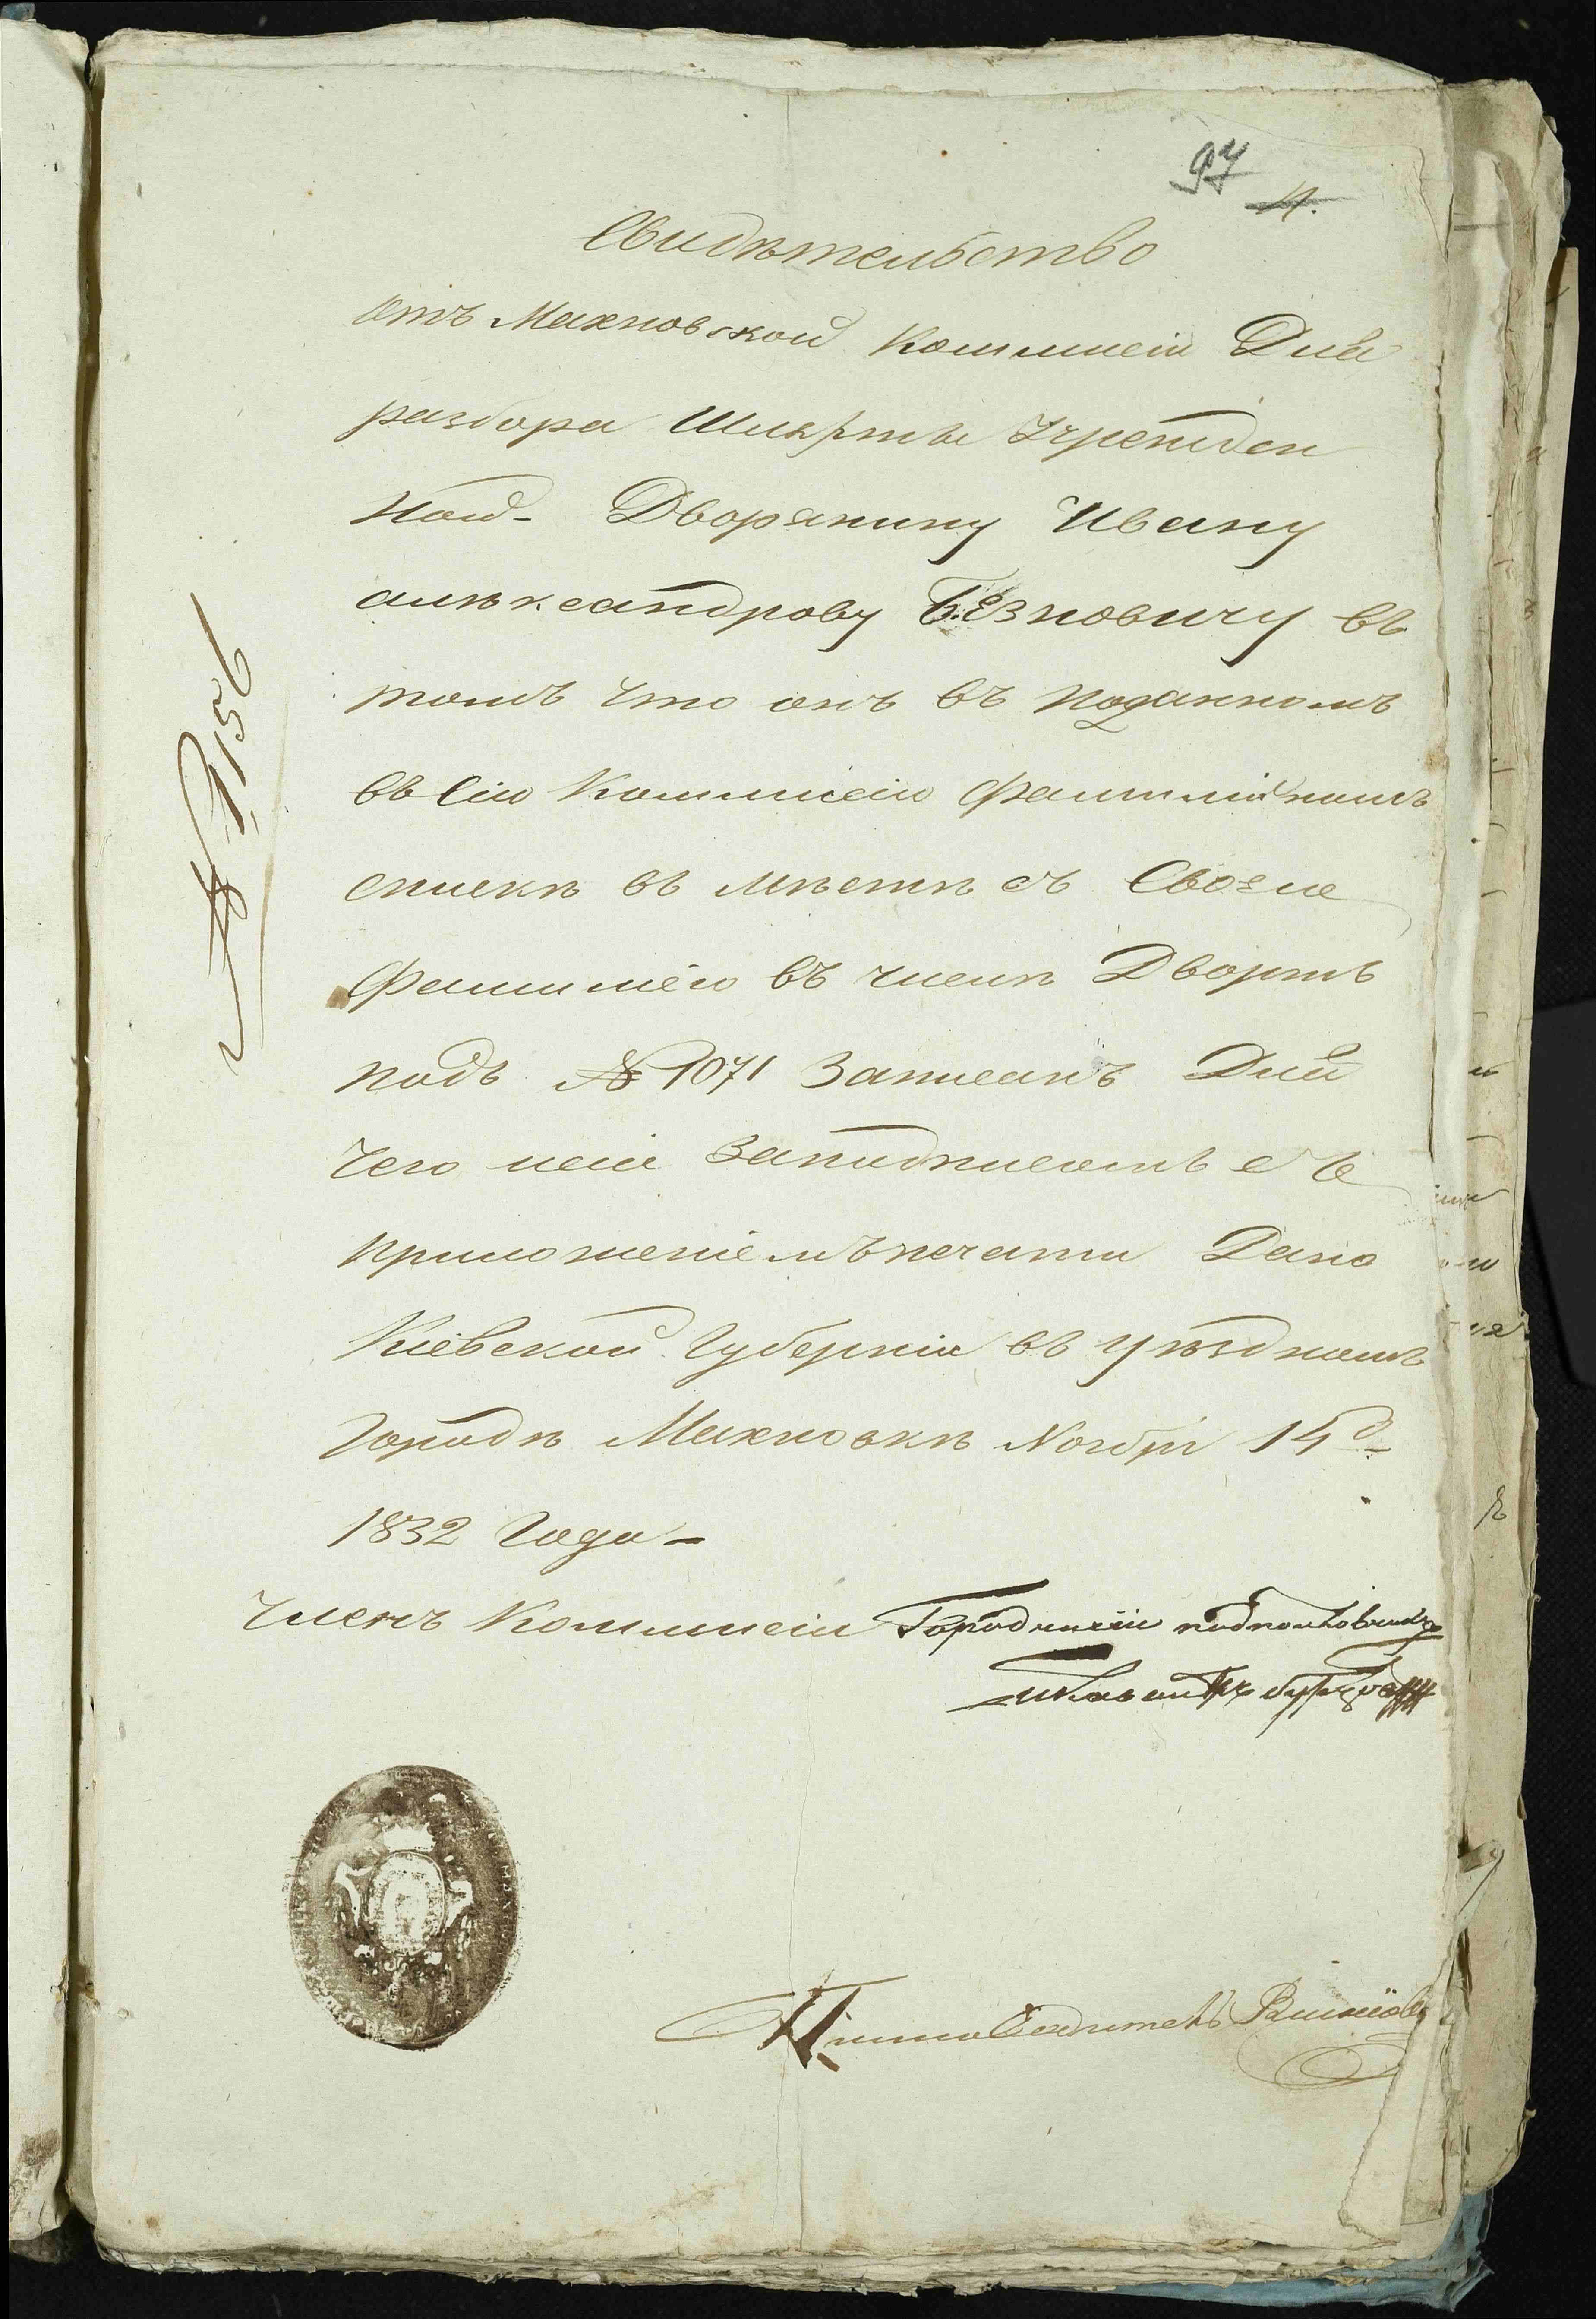 97
4.
Свидѣтельство
отъ Махновской Коммисіи Для
разбора Шляхты Учрежден
ной - Дворянину Ивану
алѣксандрову Безновичу въ
томъ что онъ въ поданномъ
въ Сію Коммисію Фамилійномъ
спискѣ въ мѣстѣ съ Своею
Фамиліею въ числѣ Дворянъ
подъ № 1071 Записанъ Для
Чего ему За подписомъ съ
приложеніемъ печати Дано
Кіевской Губерніи въ уѣздномъ
Городѣ Махновкѣ Ноября 14д
1832 Года -
Членъ Коммисіи Городничій подполковникъ
Письмоводитель
№ 1156